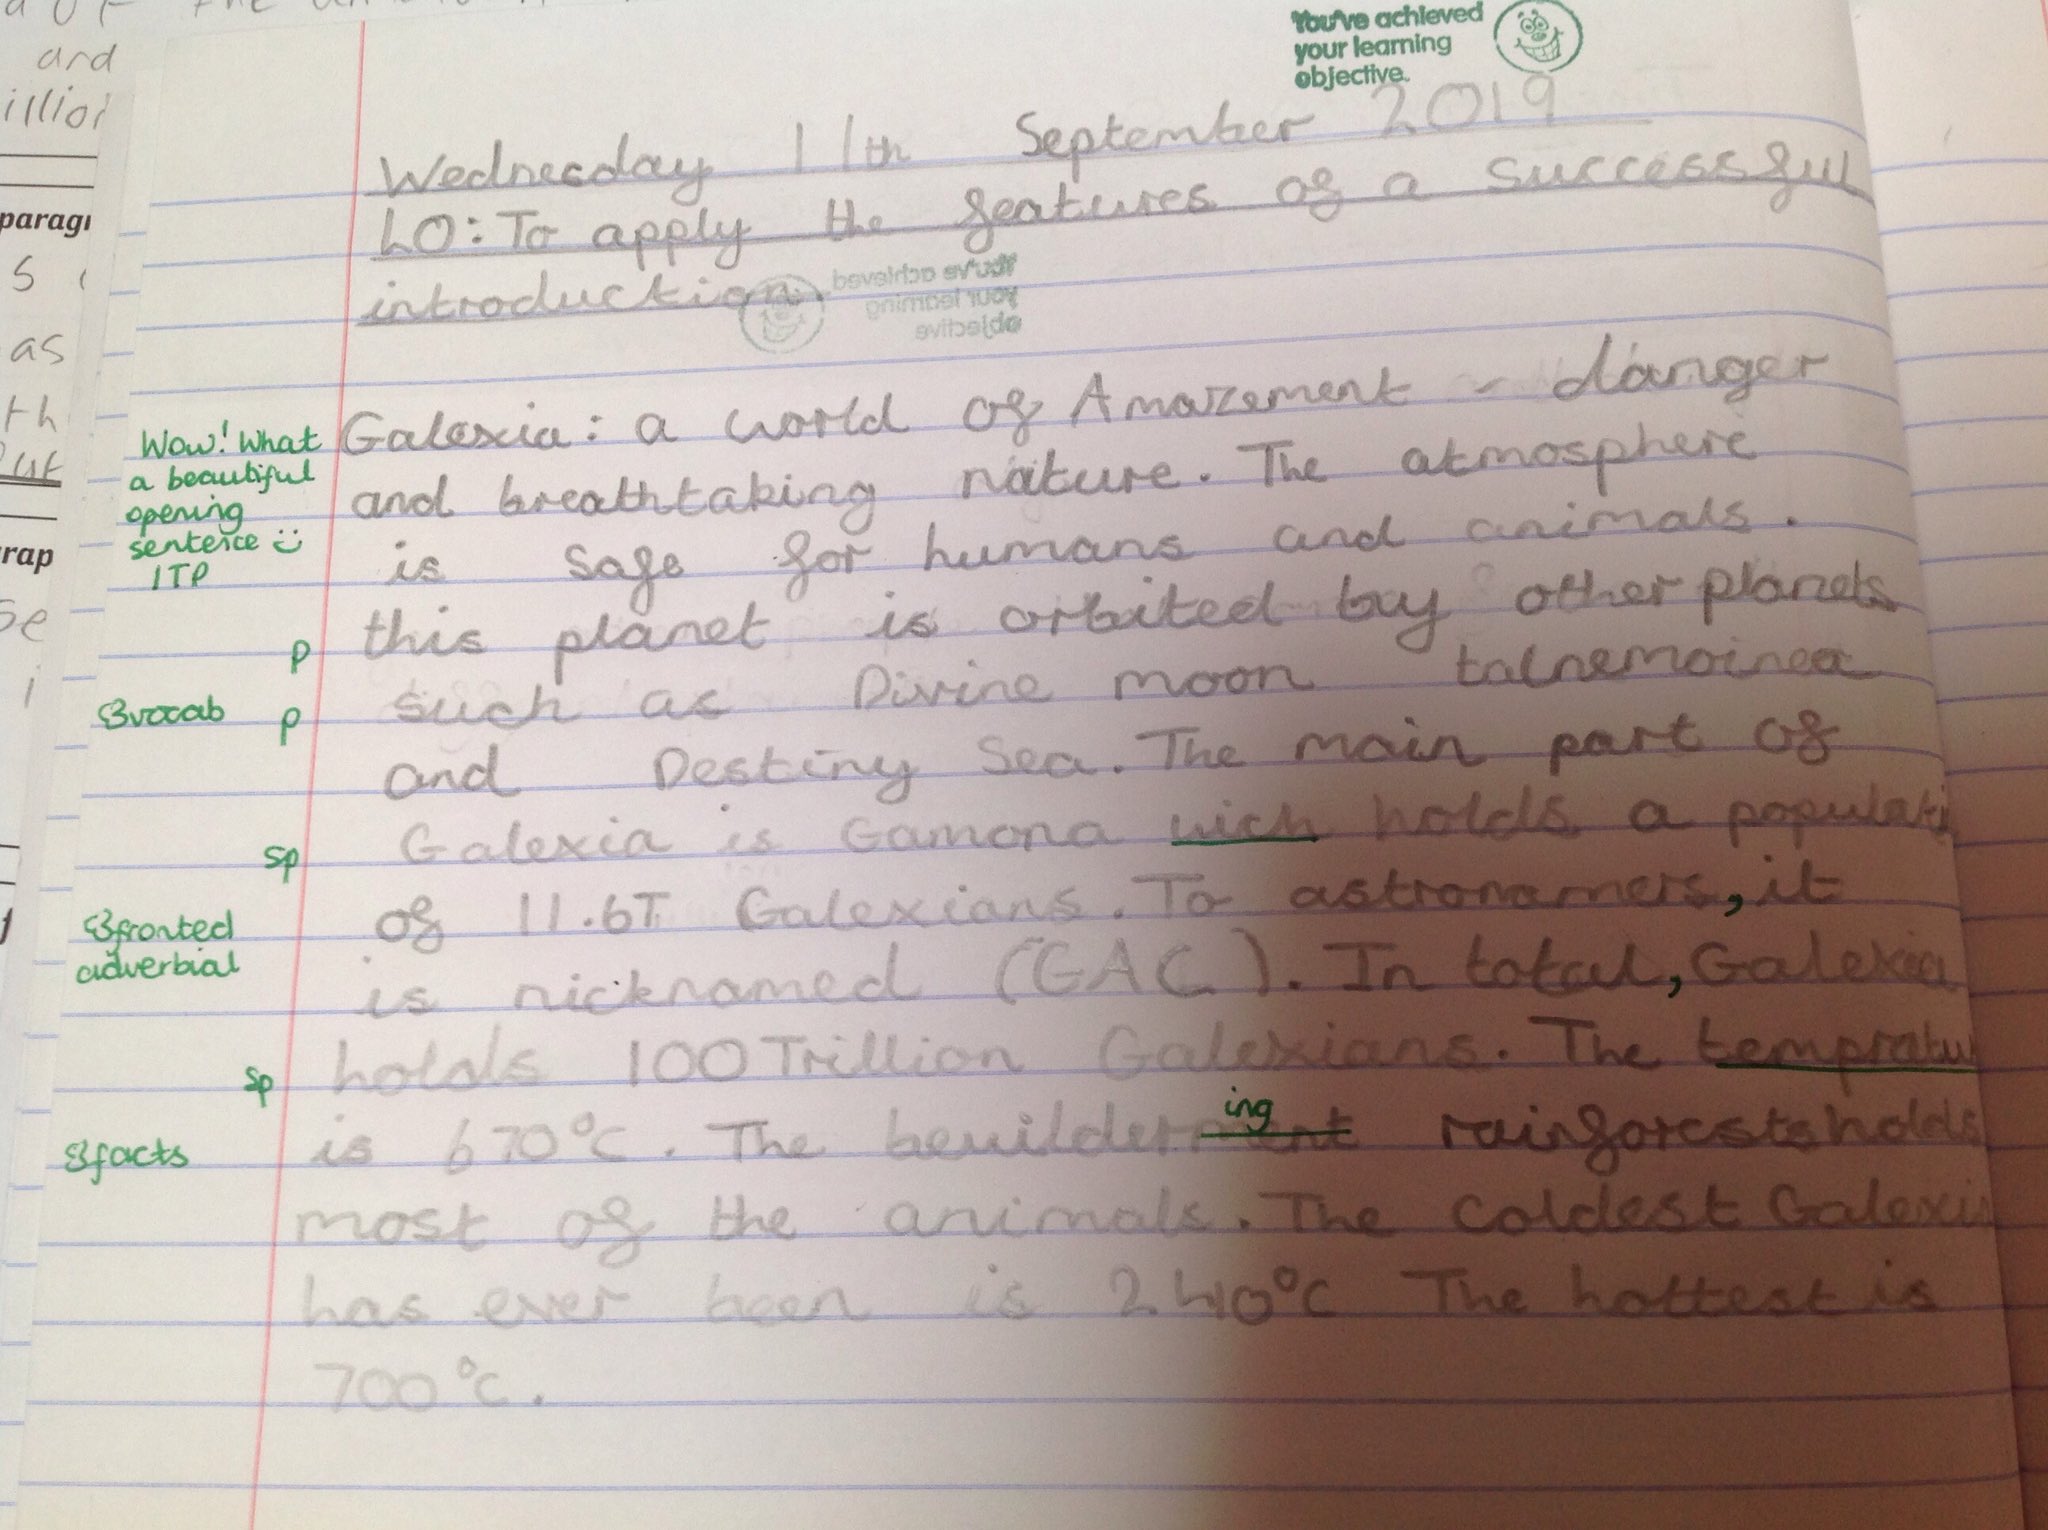 ard
illion
paragr
s
as
th
rap
se
i
You've achieved
your learning
objective.
Wednesday 11th September 2019
LO: To apply the features of a successful
introduction
You've achieved
your learning
objective
Wow! What
a beautiful
opening
sentence
ITP
Galexia: a world of Amazement - danger
and breathtaking nature. The atmosphere
is safe for humans and animals.
p this planet is orbited buy other planets
vocab p such as Divine moon talnemoinea
and Destiny Sea. The main part of
sp Galexia is Gamona wich holds a populati
of 11.6T Galexians. To astronamers, it
fronted
adverbial
is nicknamed (GAC). In total, Galexia
sp holds 100 Trillion Galexians. The tempratu
ing
facts is 670°c. The bewilderment rainforests holds
most of the animals. The coldest Galexia
has ever been is 240°c The hottest is
700°c.